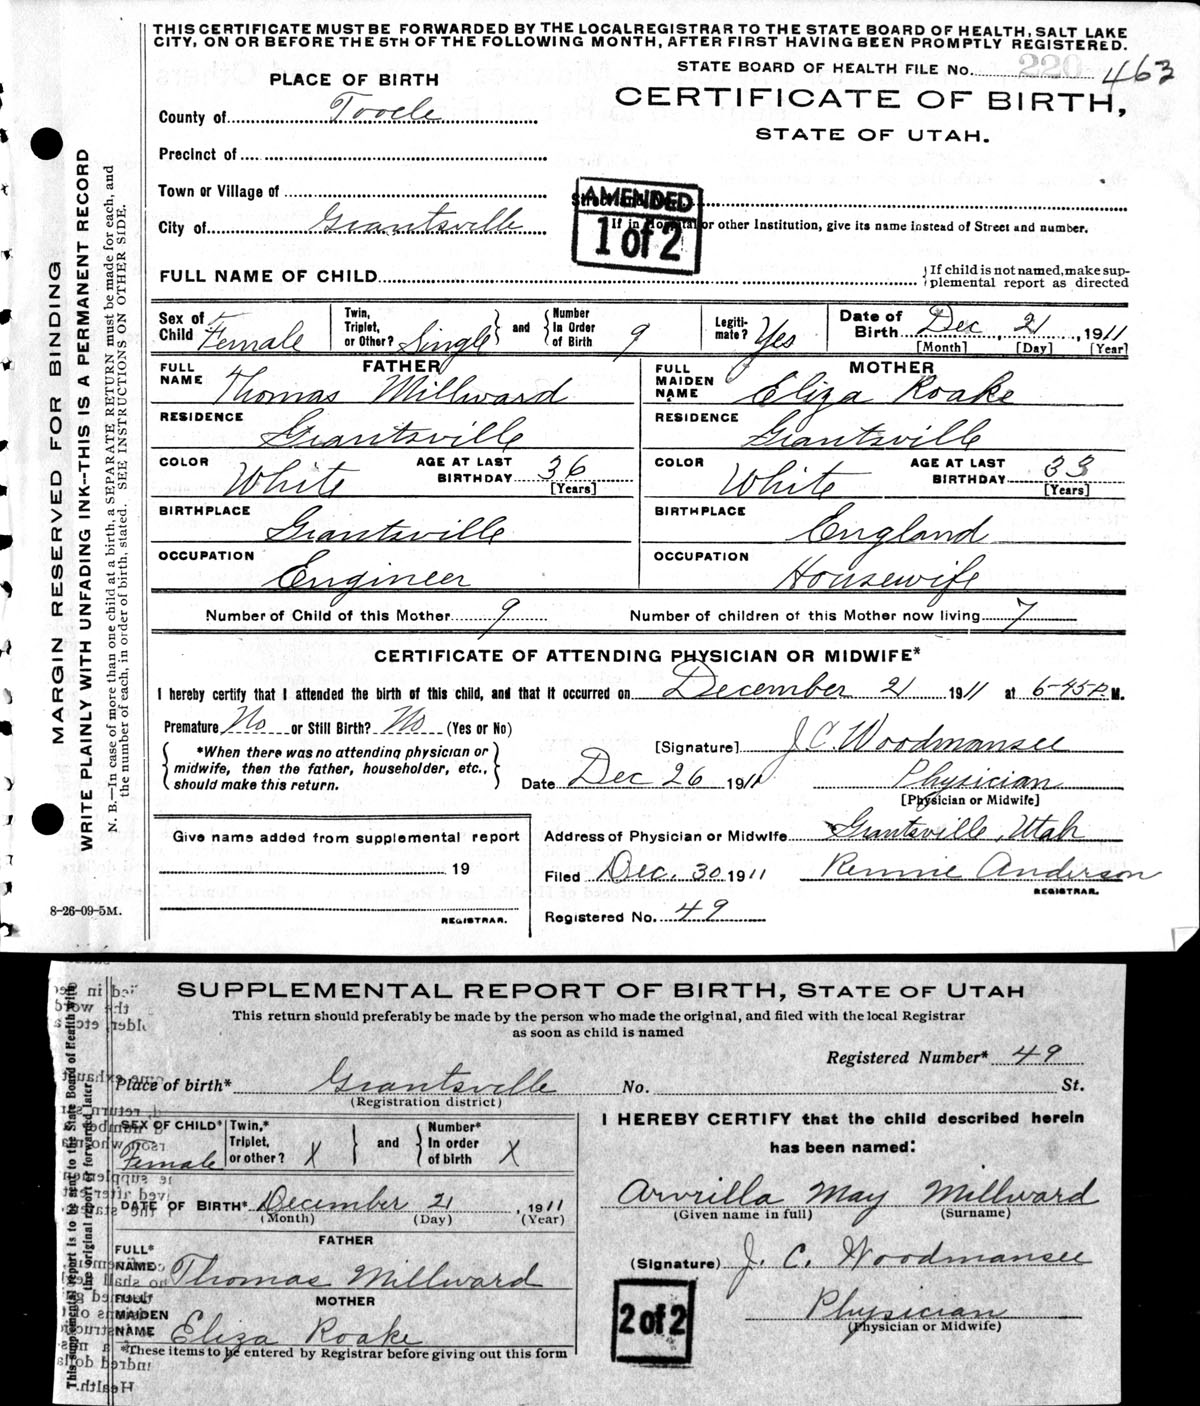 THIS CERTIFICATE MUST BE FORWARDED BY THE LOCAL REGISTRAR TO THE STATE BOARD OF HEALTH, SALT LAKE
CITY, ON OR BEFORE THE 5TH OF THE FOLLOWING MONTH, AFTER FIRST HAVING BEEN PROMPTLY REGISTERED.
STATE BOARD OF HEALTH FILE No. 220 463
PLACE OF BIRTH
CERTIFICATE OF BIRTH,
STATE OF UTAH.
County of Tooele
Precinct of
Town or Village of
AMENDED
1 of 2
City of Grantsville
If in Hospital or other Institution, give its name instead of Street and number.
FULL NAME OF CHILD
{If child is not named, make sup-
plemental report as directed
Sex of Child Female
Twin, Triplet, or Other? Single } and { Number In Order of Birth 9
Legiti-mate? Yes
Date of Birth Dec 21, 1911
[Month] [Day] [Year]
FATHER
FULL NAME Thomas Millward
MOTHER
FULL MAIDEN NAME Eliza Roake
RESIDENCE Grantsville
RESIDENCE Grantsville
COLOR White AGE AT LAST BIRTHDAY 36 [Years]
COLOR White AGE AT LAST BIRTHDAY 33 [Years]
BIRTHPLACE Grantsville
BIRTHPLACE England
OCCUPATION Engineer
OCCUPATION Housewife
Number of Child of this Mother 9 Number of children of this Mother now living 7
CERTIFICATE OF ATTENDING PHYSICIAN OR MIDWIFE*
I hereby certify that I attended the birth of this child, and that it occurred on December 21 1911 at 6-45 P. M.
Premature No or Still Birth? No (Yes or No)
{*When there was no attending physician or
midwife, then the father, householder, etc.,
should make this return.}
[Signature] J. C. Woodmansee
Date Dec 26 1911 Physician
[Physician or Midwife]
Give name added from supplemental report
19
REGISTRAR.
Address of Physician or Midwife Grantsville, Utah
Filed Dec. 30 1911 Rennie Anderson
REGISTRAR.
Registered No. 49
8-26-09-5M.
MARGIN RESERVED FOR BINDING
WRITE PLAINLY WITH UNFADING INK--THIS IS A PERMANENT RECORD
N. B.--In case of more than one child at a birth, a SEPARATE RETURN must be made for each, and
the number of each, in order of birth, stated. SEE INSTRUCTIONS ON OTHER SIDE.
SUPPLEMENTAL REPORT OF BIRTH, STATE OF UTAH
This return should preferably be made by the person who made the original, and filed with the local Registrar
as soon as child is named
Registered Number* 49
Place of birth* Grantsville No. St.
(Registration district)
SEX OF CHILD* Female
Twin,* Triplet, or other? X } and { Number* In order of birth X
DATE OF BIRTH* December 21, 1911
(Month) (Day) (Year)
FATHER
FULL* NAME Thomas Millward
MOTHER
FULL* MAIDEN NAME Eliza Roake
*These items to be entered by Registrar before giving out this form
I HEREBY CERTIFY that the child described herein
has been named:
Arvrilla May Millward
(Given name in full) (Surname)
(Signature) J. C. Woodmansee
Physician
(Physician or Midwife)
2 of 2
This supplemental report is to be sent to the State Board of Health with
the original report if forwarded later